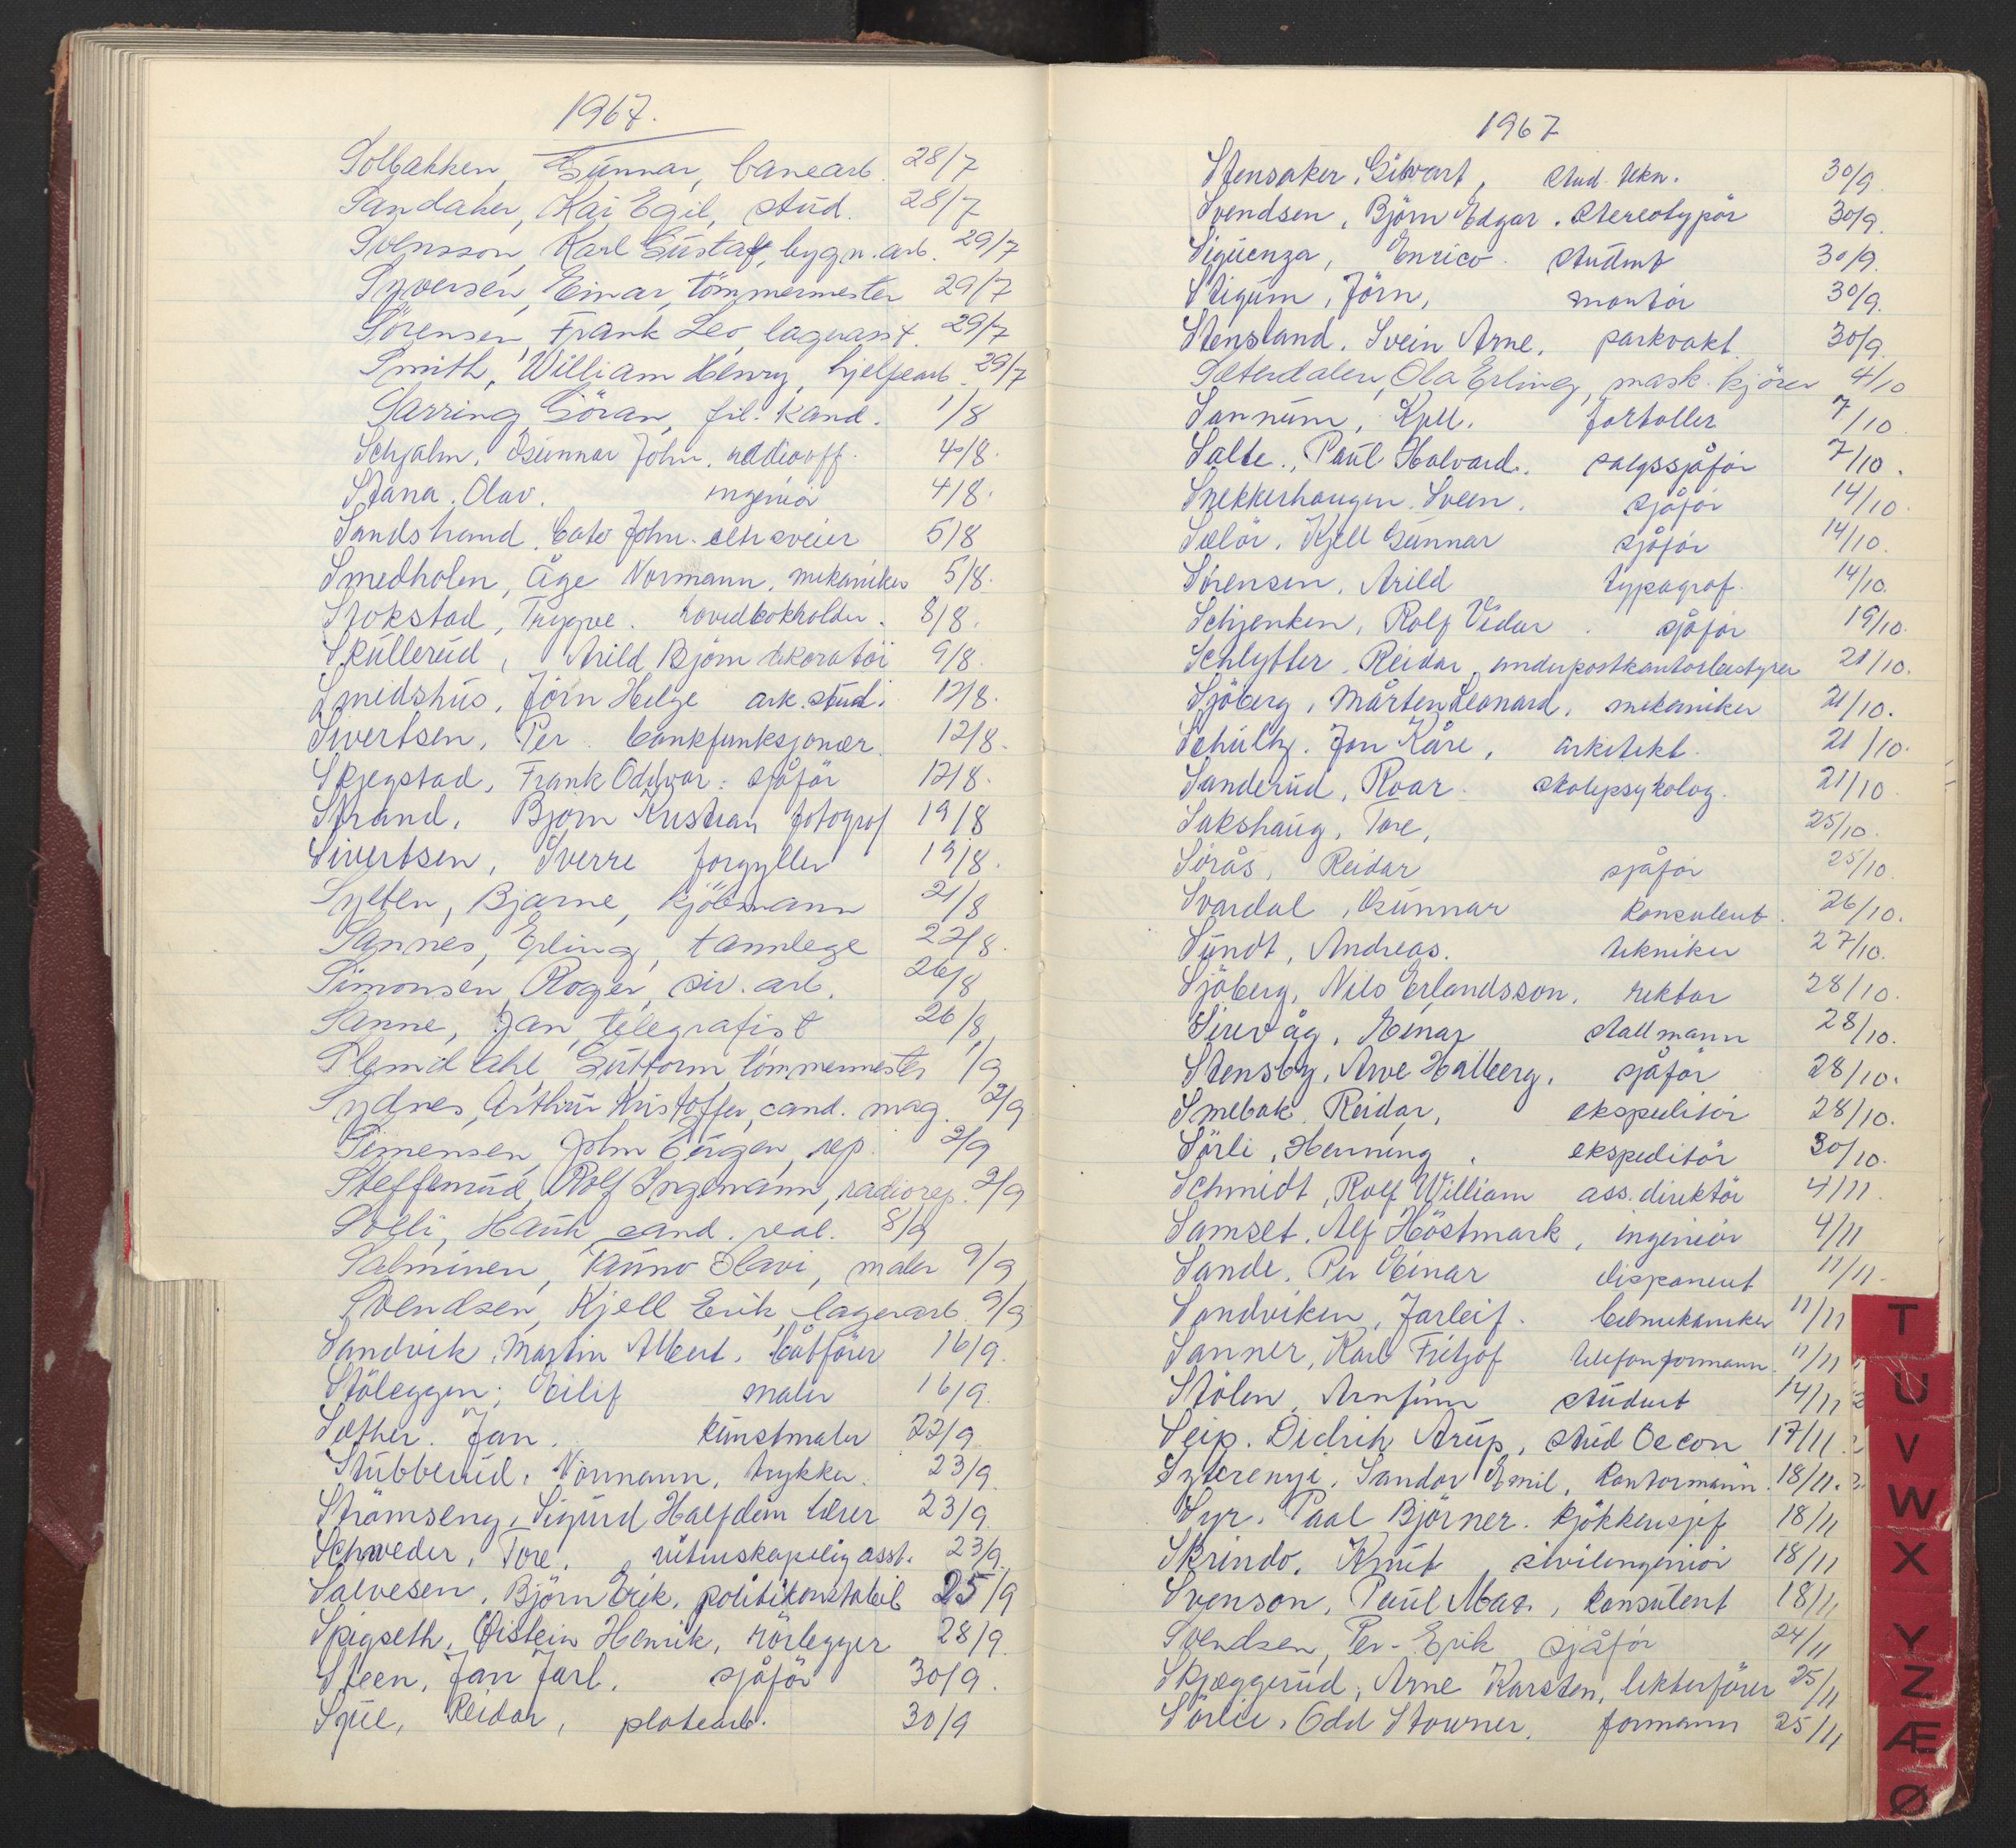 1967.
Solbakken, Gunnar, banearb. 28/7
Sandaker, Kai Egil, stud. 28/7
Svensson, Karl Gustaf, bygn.arb. 29/7
Syversen, Einar, tömmermester 29/7
Sörensen, Frank Leo, lagerasst. 29/7
Smith, William Henry, hjelpearb. 29/7
Sarring, Göran, fil. kand. 1/8
Schjalm, Gunnar John. radiooff. 4/8.
Stana. Olav. ingeniör 4/8.
Sandstrand. Cato John. eltr.sveier 5/8
Smedholen, Åge Normann. mekaniker 5/8.
Stokstad, Trygve. hovedbokholder. 8/8.
Skullerud, Arild Björn dekoratör 9/8.
Smidshus, Jörn Helge ark. stud. 12/8.
Sivertsen, Per. bankfunksjonær. 12/8.
Skjegstad, Frank Oddvar. sjåför 12/8.
Strand. Björn Kristian fotograf 19/8
Sivertsen, Sverre forgyller 19/8.
Sylten, Bjarne, kjöbmann 21/8
Sannes, Erling, tannlege 22/8.
Simonsen, Roger, siv. arb. 26/8
Sanne, Jan, telegrafist 26/8
Slemdahl Guttorm tömmermester 1/9
Sydnes, Arthur Kristoffer, cand. mag. 2/9
Simensen, John Eugen, rep. 2/9
Steffenrud, Rolf Ingemann, radiorep. 2/9
Solli, Hauk, cand. real. 8/9
Salminen, Tauno Olavi, maler 9/9
Svendsen, Kjell Erik, lagerarb. 9/9
Sandvik, Martin Albert. båtförer 16/9.
Stöleggen, Eilif maler 16/9.
Sæther. Jan. kunstmaler 22/9
Stubberud. Normann, trykker. 23/9.
Strömseng, Sigurd Halfdan lærer 23/9.
Schrøder, Tore. vitenskapelig asst. 23/9.
Salvesen, Björn Erik. politikonstabel 25/9
Spigseth. Öistein Henrik, rörlegger 28/9
Steen, Jan Jarl. sjåför 30/9.
Sque, Reidar, platearb. 30/9
1967
Stensaker, Sivart, stud. tekn. 30/9
Svendsen, Björn Edgar. stereotypör 30/9.
Siguenza, Enrico. student 30/9.
Stigum, Jörn, montör 30/9.
Stensland. Svein Arne. parkvakt 30/9.
Sæterdalen, Ola Erling, mask. kjörer 4/10
Sannum, Kjell. fortoller 7/10
Salte., Paul Halvard. salgssjåför 7/10.
Snekkerhaugen. Sveen. sjåför 14/10.
Sælör. Kjell Gunnar sjåför 14/10.
Sörensen, Arild typograf. 14/10.
Schjenken, Rolf Vidar. sjåför 19/10.
Schlytter. Reidar underpostkontorbestyrer 21/10.
Sjöberg, Mårten Leonard. mekaniker 21/10.
Schultz. Jon Kåre, arkitekt. 21/10.
Sanderud, Roar. skolepsykolog. 21/10
Sakshaug, Tore, 25/10.
Sörås, Reidar sjåför 25/10.
Svardal, Gunnar konsulent. 26/10.
Sundt, Andreas. tekniker 27/10.
Sjöberg, Nils Erlandsson. rektor 28/10.
Sirevåg, Einar stallmann 28/10.
Stensby, Arve Halberg. sjåför 28/10.
Smebak. Reidar, ekspeditör 28/10.
Sörli, Henning. ekspeditör 30/10.
Schmidt, Rolf William ass. direktör 4/11.
Samset. Alf Höstmark, ingeniör 4/11
Sande. Per Einar disponent 11/11.
Sandviken, Jarleif. bilmekaniker 11/11
Sanner, Karl Fritjof telefonformann. 11/11
Stölen, Arnfinn student 14/11
Seip. Didrik Arup, stud Oecon 17/11.
Szterenyi. Sandor Emil, kontormann. 18/11.
Syr. Paal Björner. kjökkensjef 18/11
Skrindo. Knut, sivilingeniör 18/11
Svenson, Paul Max, konsulent 18/11
Svendsen, Per-Erik sjåför 24/11
Skjæggerud, Arne Karsten, lekterförer 25/11
Sörlie, Odd Stovner. formann 25/11
T
U
V
W
X
Y
Z
Æ
Ø